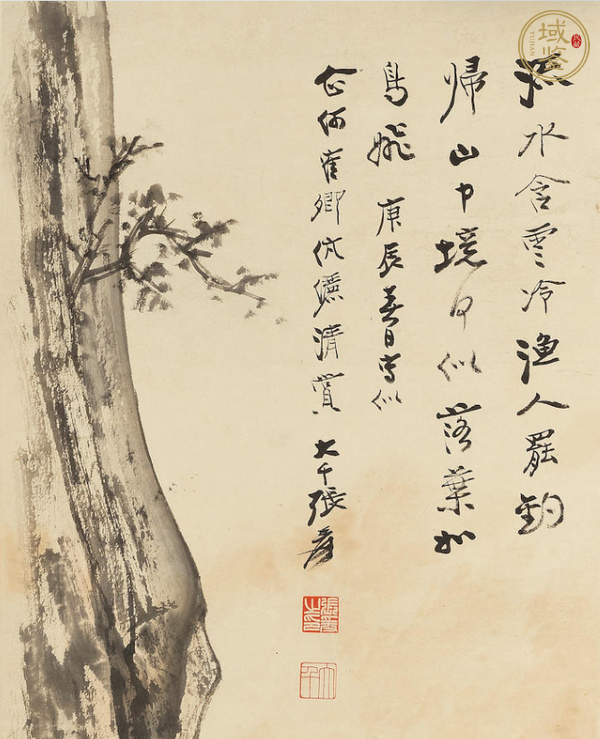 域鉴
YUJIAN
秋水含雲冷漁人罷釣
歸山中境何似落葉如
鳥飛 庚辰春日寫似
卿伉儷清賞 大千張爰
張爰之印
大千